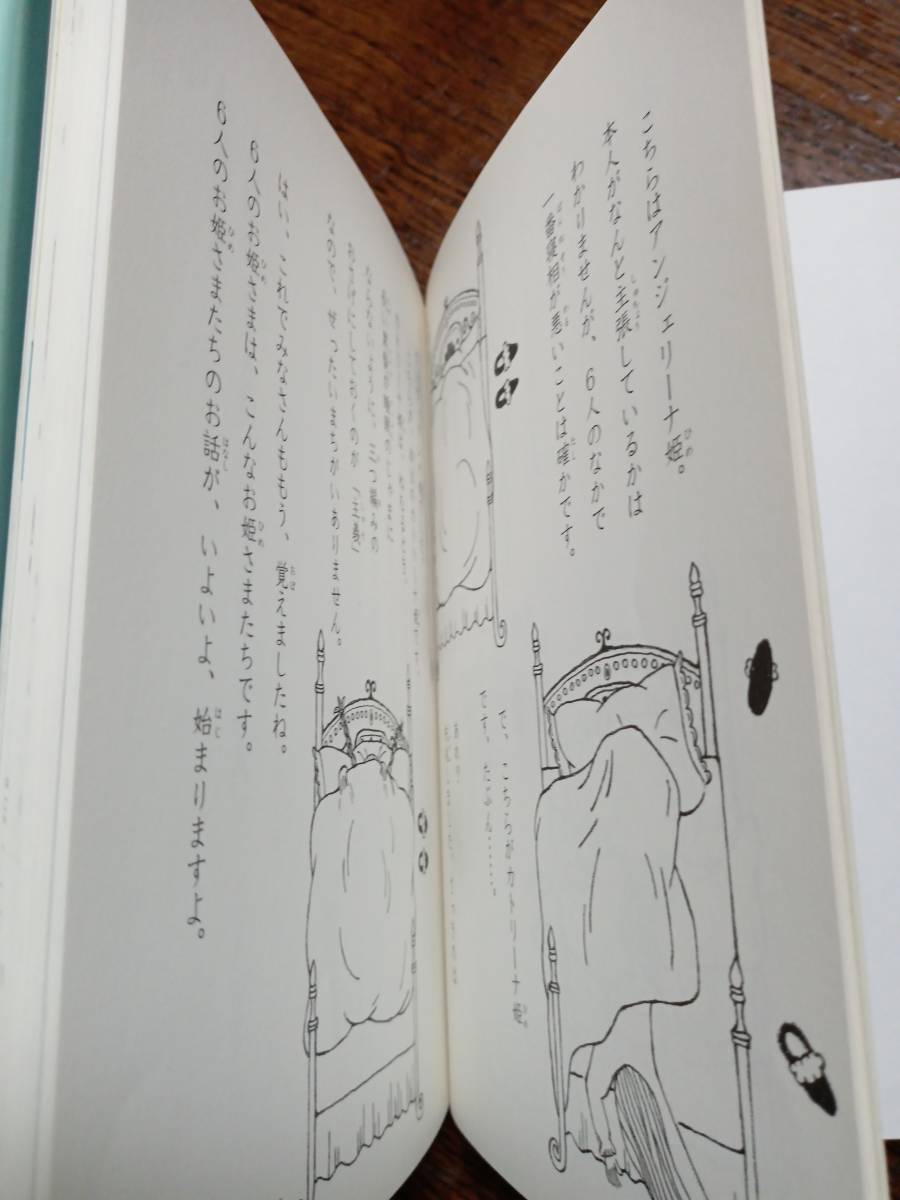 こちらはアンジェリーナ姫。
本人がなんと主張しているかは
わかりませんが、6人のなかで
一番寝相が悪いことは確かです。
で、こちらがカトリーナ姫
です。たぶん……。
ならないように、三つ編みの
おさげにしておくのが
なので、ぜったいまちがいありません。
はい、これでみなさんももう、覚えましたね。
6人のお姫さまは、こんなお姫さまたちです。
6人のお姫さまたちのお話が、いよいよ、始まりますよ。